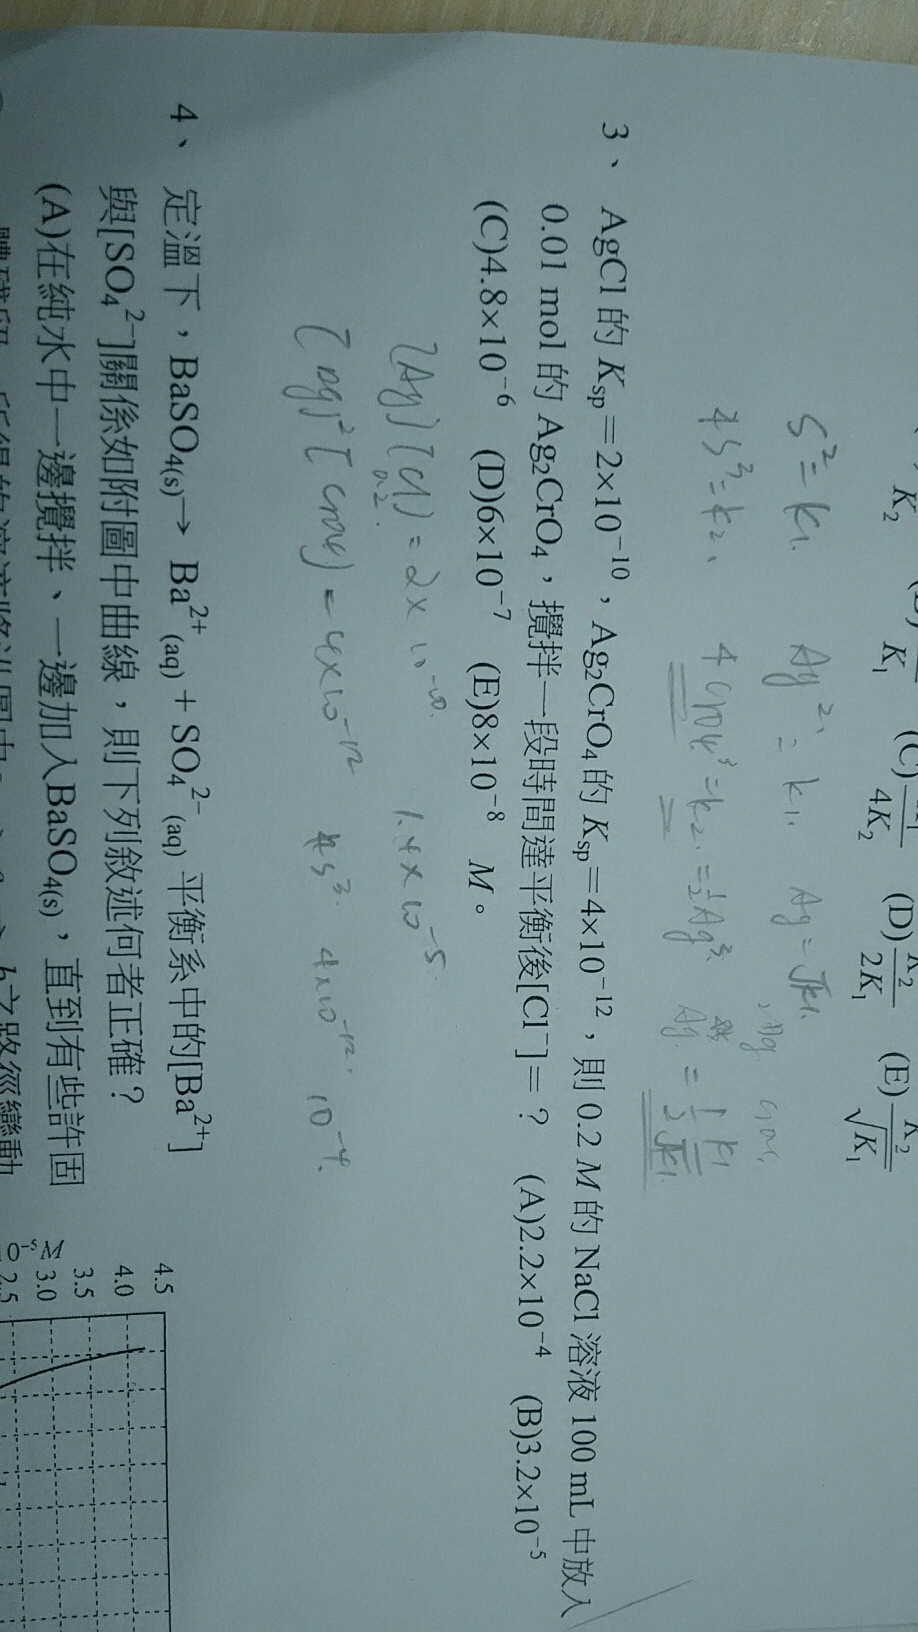 K₂ K₁ (C) 4K₂ (D) K₂/2K₁ (E) K₂/√K₁
S² = K₁ Ag² = K₁. Ag = √K₁.
4S³ = K₂
3、AgCl 的 Ksp=2×10⁻¹⁰,Ag₂CrO₄的 Ksp=4×10⁻¹²,則 0.2 M 的 NaCl 溶液 100 mL 中放入
0.01 mol 的 Ag₂CrO₄,攪拌一段時間達平衡後[Cl⁻]=? (A)2.2×10⁻⁴ (B)3.2×10⁻⁵
(C)4.8×10⁻⁶ (D)6×10⁻⁷ (E)8×10⁻⁸ M。
[Ag][Cl] = 2×10⁻¹⁰. 1.4×10⁻⁵
0.2
[Ag]²[CrO4] = 4×10⁻¹² 4S³. 4×10⁻¹². 10⁻⁴.
4、定溫下,BaSO₄(s)→ Ba²⁺(aq) + SO₄²⁻(aq) 平衡系中的[Ba²⁺]
與[SO₄²⁻]關係如附圖中曲線,則下列敘述何者正確?
(A)在純水中一邊攪拌、一邊加入BaSO₄(s),直到有些許固
4.5
4.0
3.5
3.0
2.5